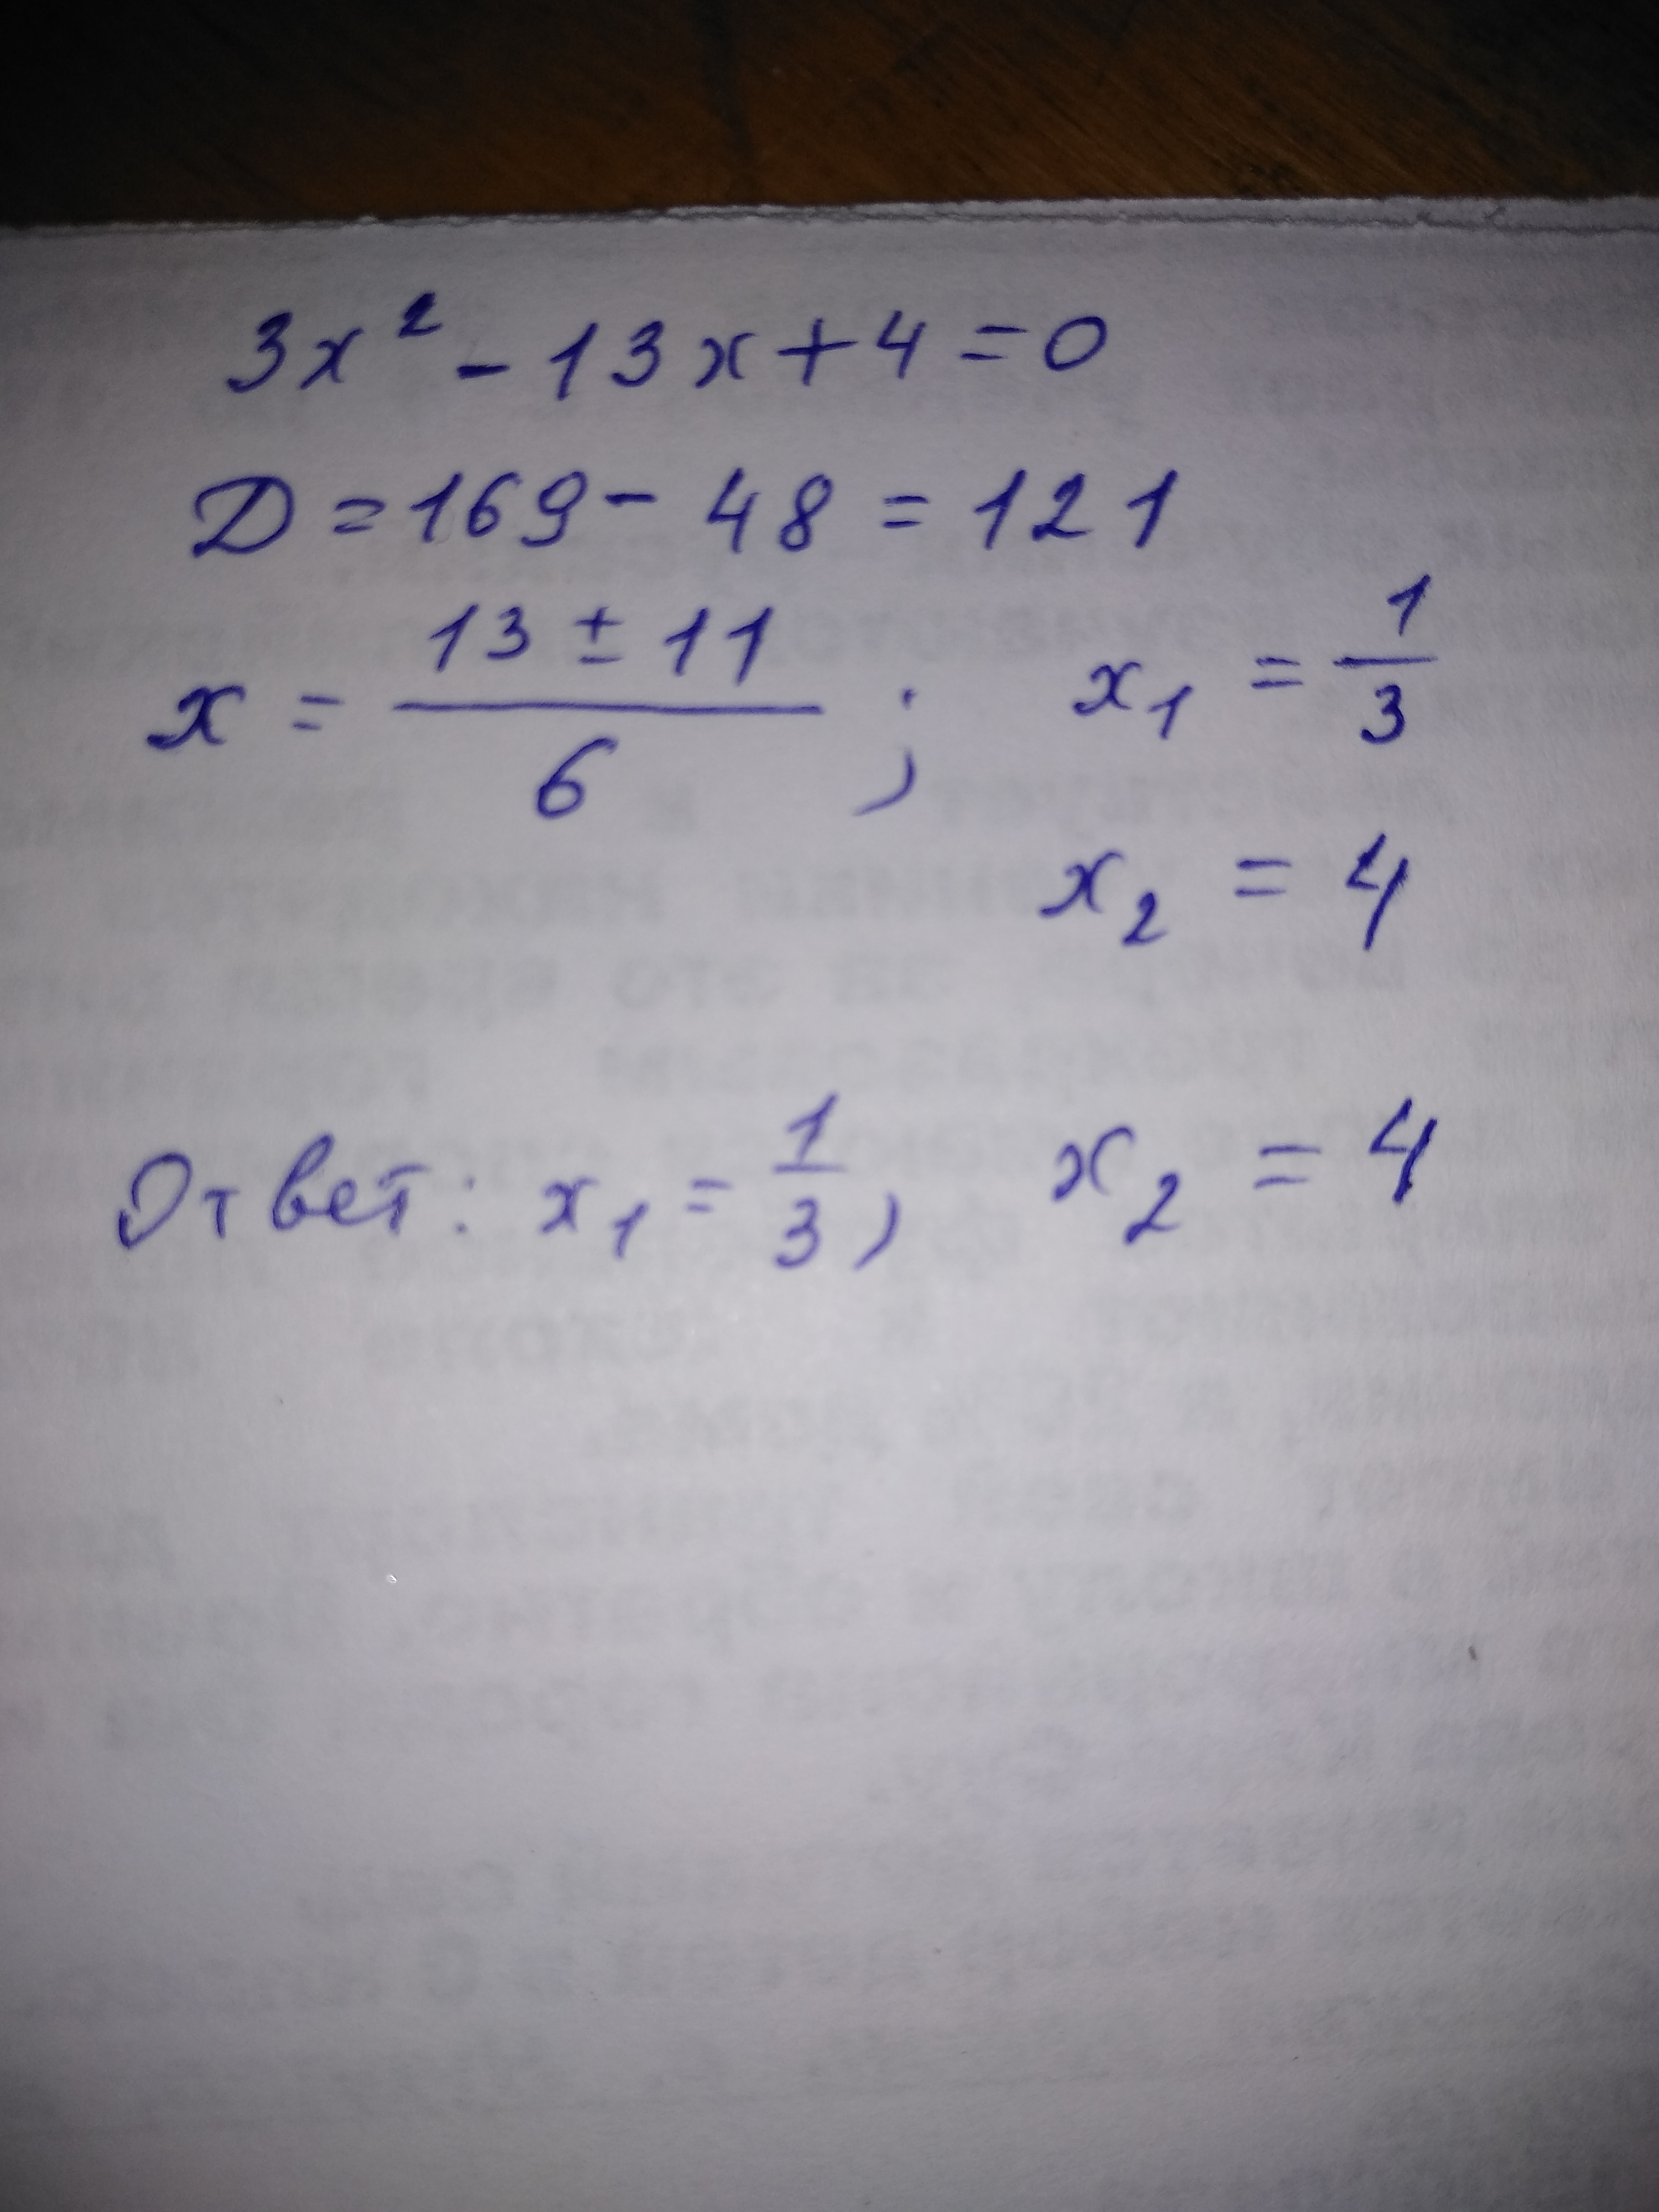 3x² - 13x + 4 = 0
D = 169 - 48 = 121
x = (13 ± 11)/6 ; x₁ = 1/3
x₂ = 4
Ответ: x₁ = 1/3, x₂ = 4